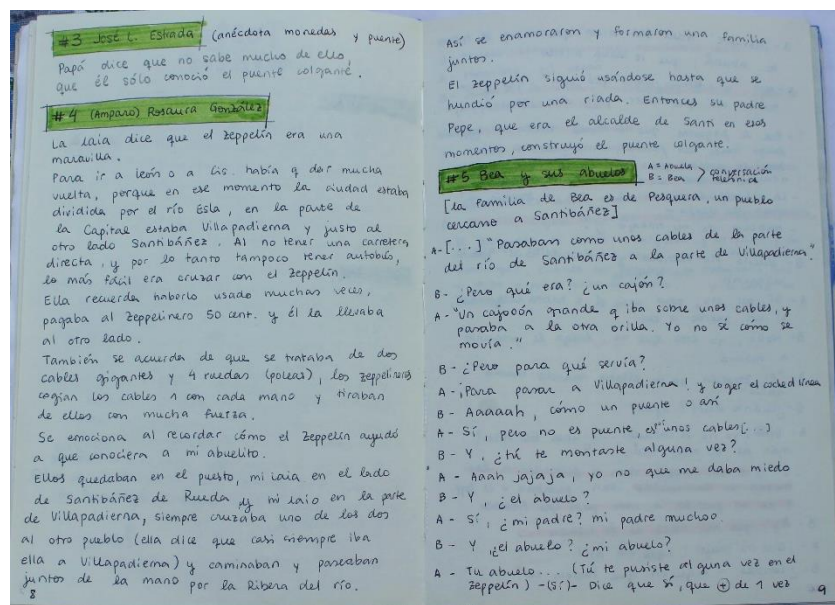 #3 José L. Estrada (anécdota monedas y puente)
Papá dice que no sabe mucho de ello,
que él sólo conoció el puente colgante.
#4 (Amparo) Rosaura González
La iaia dice que el zeppelín era una
maravilla.
Para ir a león o a Cis. había q dar mucha
vuelta, porque en ese momento la ciudad estaba
dividida por el río Esla, en la parte de
la Capital estaba Villapadierna y justo al
otro lado Santibáñez. Al no tener una carretera
directa, y por lo tanto tampoco tener autobús,
lo más fácil era cruzar con el zeppelín.
Ella recuerda haberlo usado muchas veces,
pagaba al zeppelinero 50 cent. y él la llevaba
al otro lado.
También se acuerda de que se trataba de dos
cables gigantes y 4 ruedas (poleas), los zeppelineros
cogían los cables 1 con cada mano y tiraban
de ellos con mucha fuerza.
Se emociona al recordar cómo el zeppelín ayudó
a que conociera a mi abuelito.
Ellos quedaban en el puesto, mi iaia en el lado
de Santibáñez de Rueda y mi iaio en la parte
de Villapadierna, siempre cruzaba uno de los dos
al otro pueblo (ella dice que casi siempre iba
ella a Villapadierna) y caminaban y paseaban
juntos de la mano por la Ribera del río.
8
Así se enamoraron y formaron una familia
juntos.
El zeppelín siguió usándose hasta que se
hundió por una riada. Entonces su padre
Pepe, que era el alcalde de Santi en esos
momentos, construyó el puente colgante.
#5 Bea y sus abuelos A = Abuela B = Bea > conversación telefónica
[la familia de Bea es de Pesquera, un pueblo
cercano a Santibáñez]
A- [...] "Pasaban como unos cables de la parte
del río de Santibáñez a la parte de Villapadierna".
B - ¿Pero qué era? ¿un cajón?
A - "Un cajoón grande q iba sobre unos cables, y
pasaba a la otra orilla. Yo no sé cómo se
movía."
B - ¿Pero para qué servía?
A - ¡Para pasar a Villapadierna! y coger el coche d línea
B - Aaaaah, cómo un puente o así
A - Sí, pero no es puente, es unos cables [...]
B - Y, ¿tú te montaste alguna vez?
A - Aaah jajaja, yo no que me daba miedo
B - Y, ¿el abuelo?
A - Sí, ¿mi padre? mi padre muchoo.
B - Y ¿el abuelo? ¿mi abuelo?
A - Tu abuelo... (Tú te pusiste alguna vez en el
zeppelín) -(Sí)- Dice que sí, que + de 1 vez
9